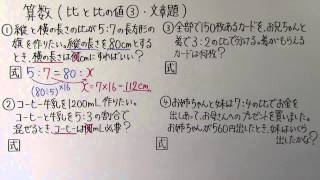 算数(比と比の値③・文章題)
①縦と横の長さの比が5:7の長方形の
旗を作りたい。縦の長さを80cmとする
とき、横の長さは何cmにすればいい?
式 5:7=80:x
(80÷5) ×16
x=7×16=112cm
②コーヒー牛乳を1200mL作りたい。
コーヒーと牛乳を5:3の割合で
混ぜるとき、コーヒーは何mL必要?
式
③全部で150枚あるカードを、お兄ちゃんと
弟で3:2の比で分ける。弟がもらえる
カードは何枚?
式
④お姉ちゃんと妹は7:4の比でお金を
出しあって、お母さんへのプレゼントを買いました。
お姉ちゃんが560円出したとき、妹はいくら
出したかな?
式